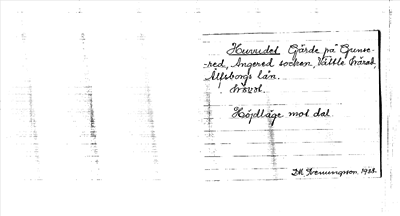 Huvudet Gärde på Gunse-
red, Angered socken, Vättle härad,
Älfsborgs län.
Höjdläge mot dal
M. Svenungson. 1928.